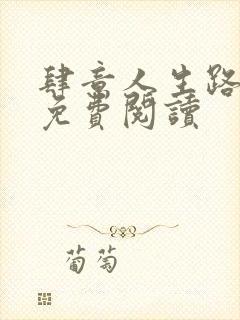 肆意人生路
免費閱讀
葡萄